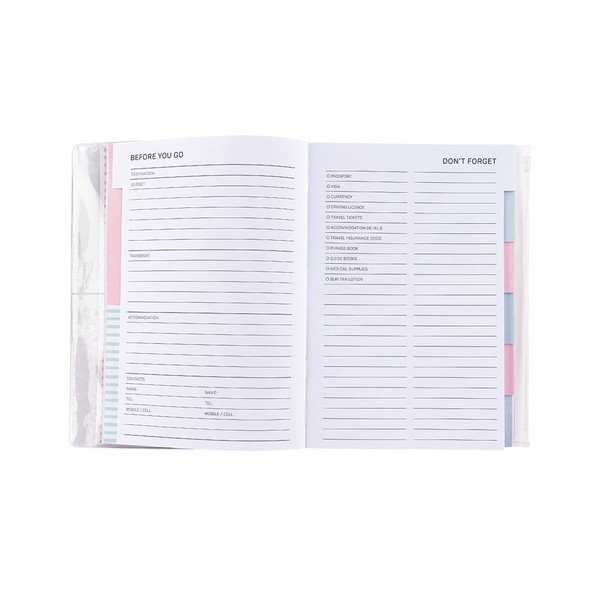 BEFORE YOU GO
DESTINATION
BUDGET
TRANSPORT
ACCOMMODATION
CONTACTS
NAME: NAME:
TEL: TEL:
MOBILE / CELL: MOBILE / CELL:
DON'T FORGET
PASSPORT
VISA
CURRENCY
DRIVING LICENCE
TRAVEL TICKETS
ACCOMMODATION DETAILS
TRAVEL INSURANCE DOCS
PHRASE BOOK
GUIDE BOOKS
MEDICAL SUPPLIES
SUN TAN LOTION